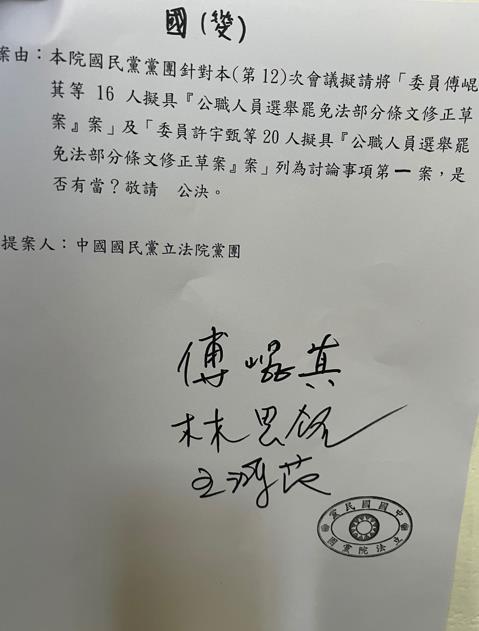 國(變)
案由：本院國民黨黨團針對本(第12)次會議擬請將「委員傅崐
萁等 16 人擬具『公職人員選舉罷免法部分條文修正草
案』案」及「委員許宇甄等20人擬具『公職人員選舉罷
免法部分條文修正草案』案」列為討論事項第一案，是
否有當？敬請 公決。
提案人：中國國民黨立法院黨團
傅崐萁
林思銘
王鴻薇
中國國民黨
立法院黨團